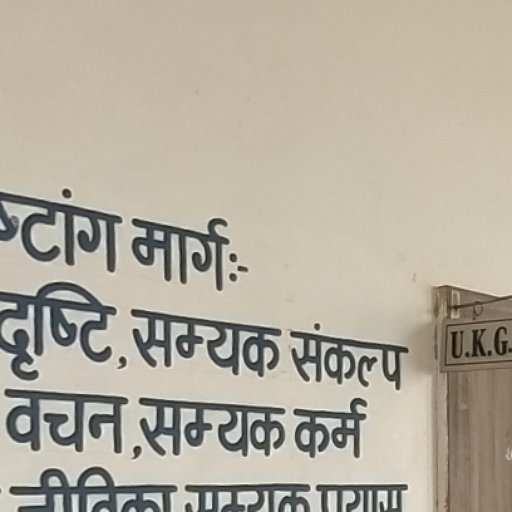 ष्टांग मार्ग:-
दृष्टि, सम्यक संकल्प
वचन, सम्यक कर्म
जीविका सम्यक प्रयास
U.K.G.